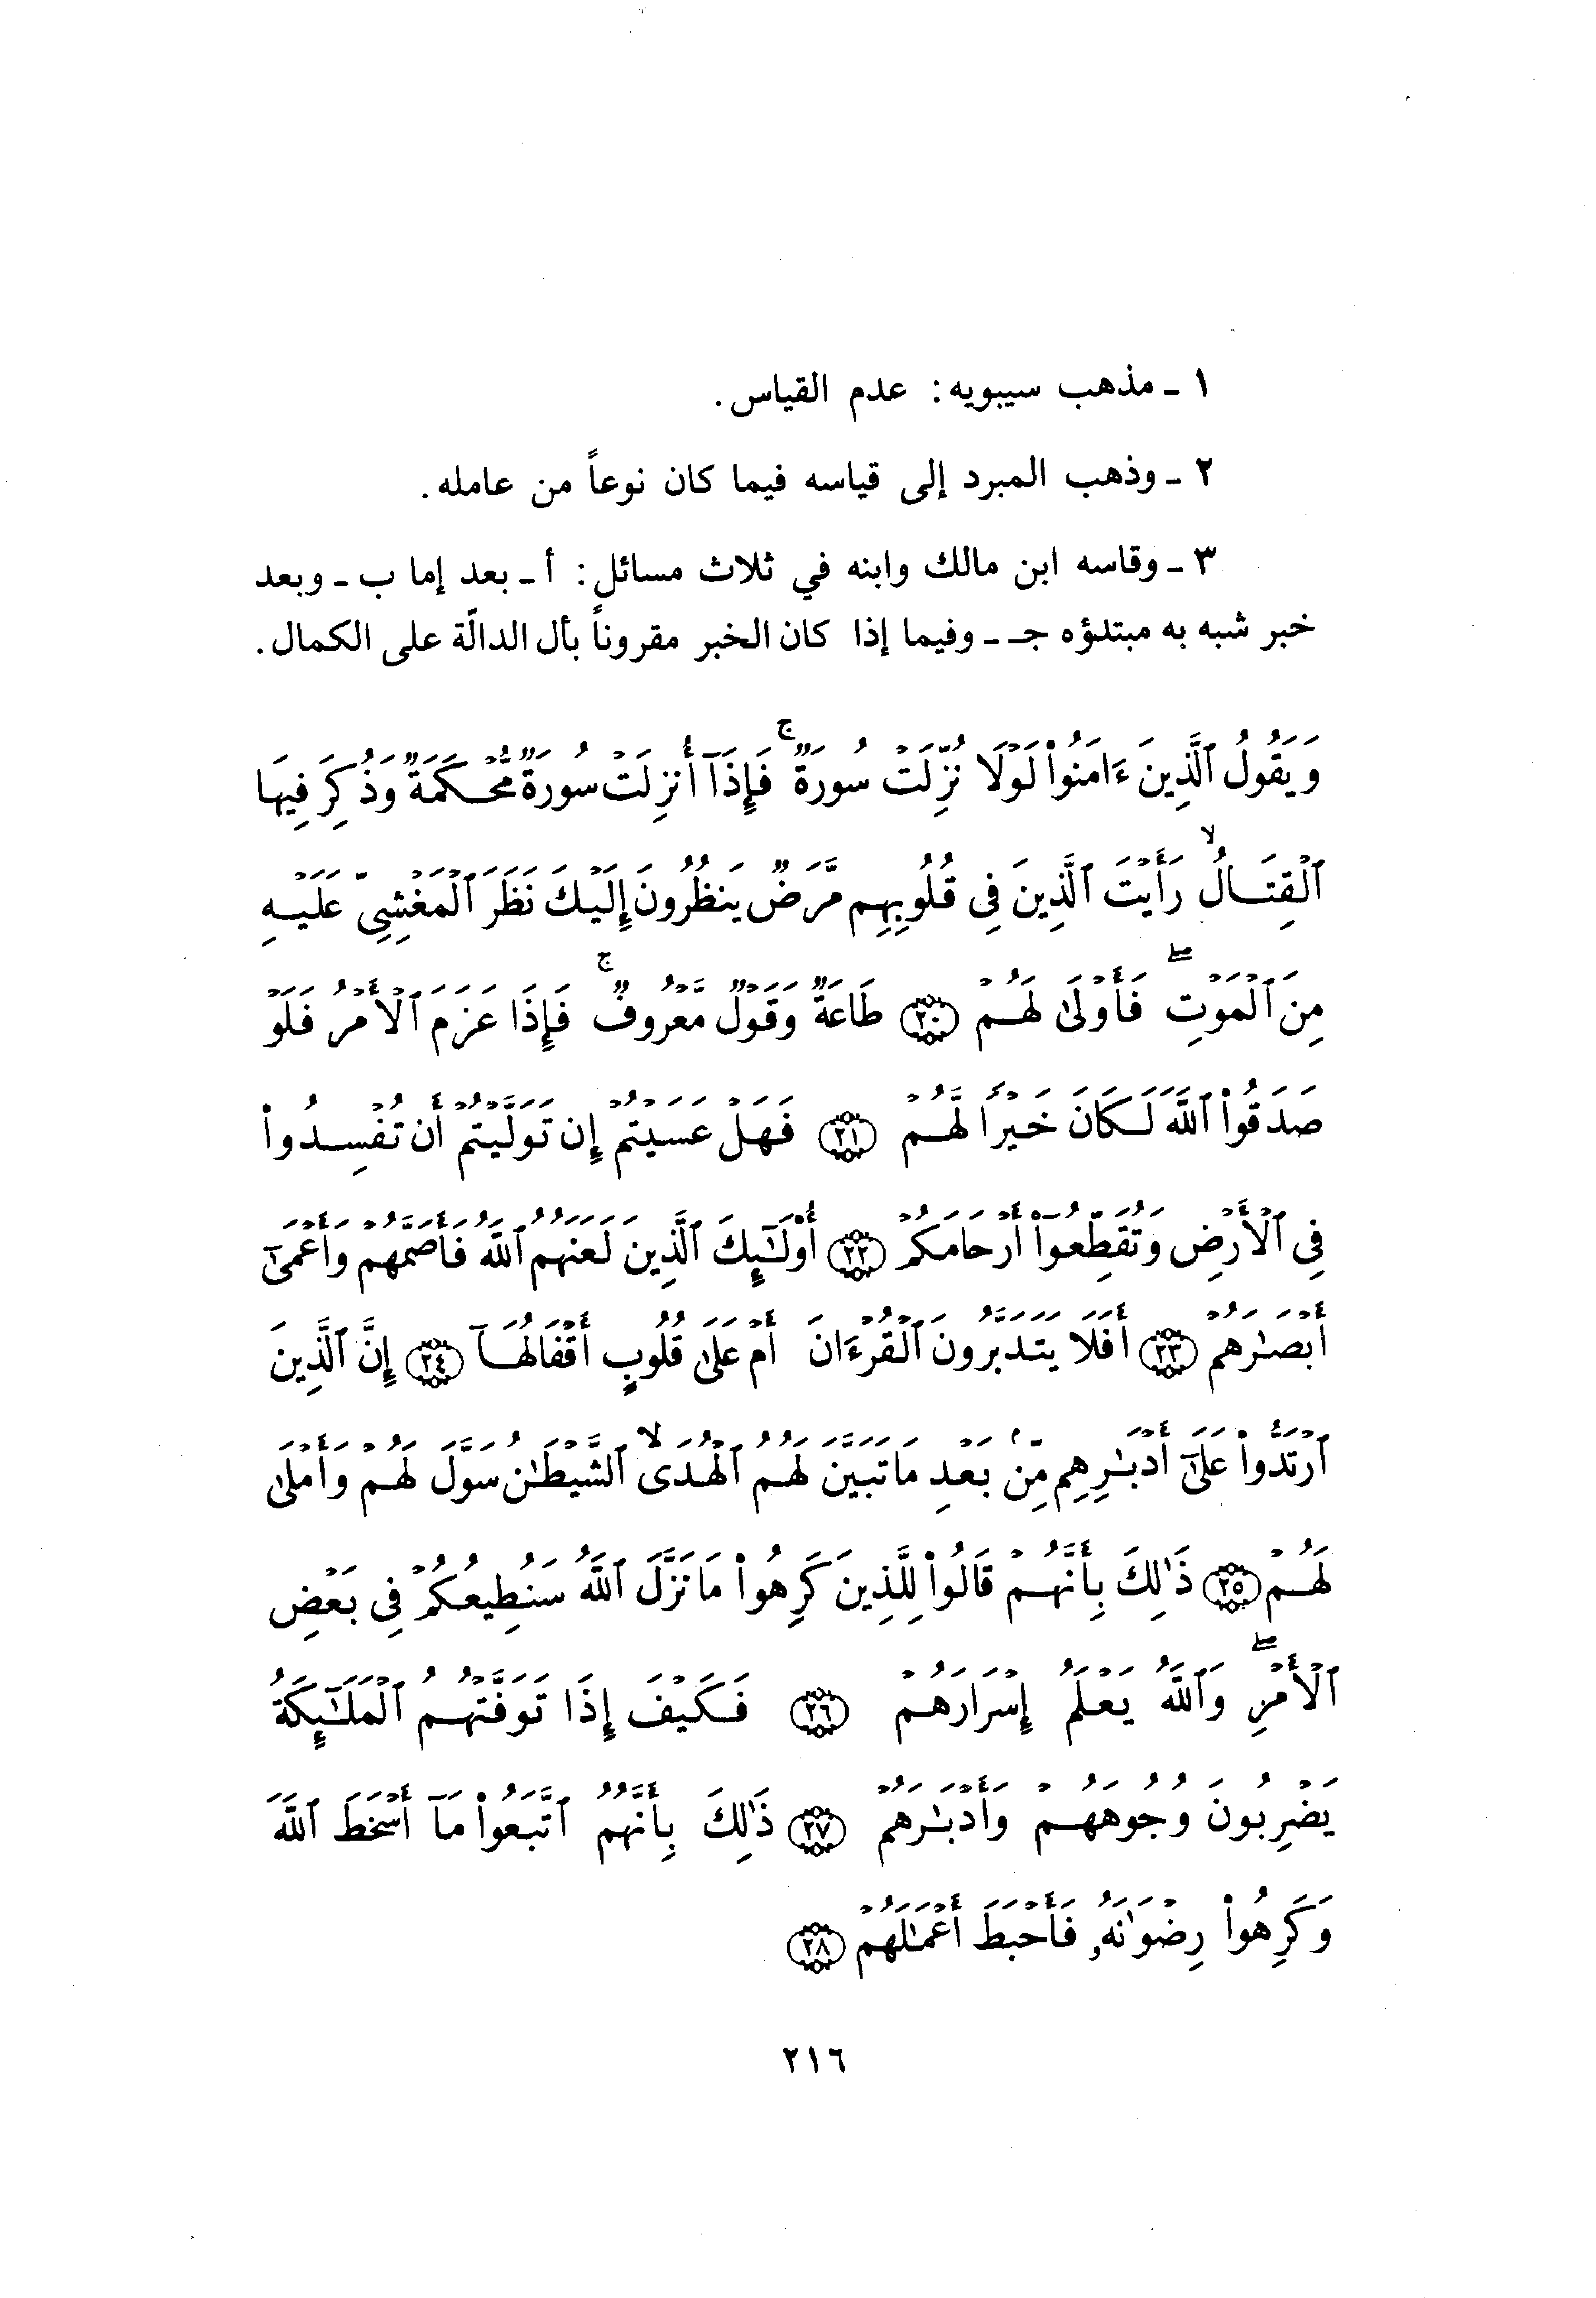 ١ ـ مذهب سيبويه: عدم القياس.
٢ ـ وذهب المبرد إلى قياسه فيما كان نوعاً من عامله.
٣ ـ وقاسه ابن مالك وابنه في ثلاث مسائل: أ ـ بعد إما ب ـ وبعد
خبر شبه به مبتدؤه جـ ـ وفيما إذا كان الخبر مقروناً بأل الدالّة على الكمال.
وَيَقُولُ ٱلَّذِينَ ءَامَنُوا۟ لَوْلَا نُزِّلَتْ سُورَةٌ ۚ فَإِذَآ أُنزِلَتْ سُورَةٌ مُّحْكَمَةٌ وَذُكِرَ فِيهَا
ٱلْقِتَالُ ۙ رَأَيْتَ ٱلَّذِينَ فِى قُلُوبِهِم مَّرَضٌ يَنظُرُونَ إِلَيْكَ نَظَرَ ٱلْمَغْشِىِّ عَلَيْهِ
مِنَ ٱلْمَوْتِ ۖ فَأَوْلَىٰ لَهُمْ ٢٠ طَاعَةٌ وَقَوْلٌ مَّعْرُوفٌ ۚ فَإِذَا عَزَمَ ٱلْأَمْرُ فَلَوْ
صَدَقُوا۟ ٱللَّهَ لَكَانَ خَيْرًا لَّهُمْ ٢١ فَهَلْ عَسَيْتُمْ إِن تَوَلَّيْتُمْ أَن تُفْسِدُوا۟
فِى ٱلْأَرْضِ وَتُقَطِّعُوٓا۟ أَرْحَامَكُمْ ٢٢ أُو۟لَـٰٓئِكَ ٱلَّذِينَ لَعَنَهُمُ ٱللَّهُ فَأَصَمَّهُمْ وَأَعْمَىٰٓ
أَبْصَـٰرَهُمْ ٢٣ أَفَلَا يَتَدَبَّرُونَ ٱلْقُرْءَانَ أَمْ عَلَىٰ قُلُوبٍ أَقْفَالُهَآ ٢٤ إِنَّ ٱلَّذِينَ
ٱرْتَدُّوا۟ عَلَىٰٓ أَدْبَـٰرِهِم مِّنۢ بَعْدِ مَا تَبَيَّنَ لَهُمُ ٱلْهُدَى ۙ ٱلشَّيْطَـٰنُ سَوَّلَ لَهُمْ وَأَمْلَىٰ
لَهُمْ ٢٥ ذَٰلِكَ بِأَنَّهُمْ قَالُوا۟ لِلَّذِينَ كَرِهُوا۟ مَا نَزَّلَ ٱللَّهُ سَنُطِيعُكُمْ فِى بَعْضِ
ٱلْأَمْرِ ۖ وَٱللَّهُ يَعْلَمُ إِسْرَارَهُمْ ٢٦ فَكَيْفَ إِذَا تَوَفَّتْهُمُ ٱلْمَلَـٰٓئِكَةُ
يَضْرِبُونَ وُجُوهَهُمْ وَأَدْبَـٰرَهُمْ ٢٧ ذَٰلِكَ بِأَنَّهُمُ ٱتَّبَعُوا۟ مَآ أَسْخَطَ ٱللَّهَ
وَكَرِهُوا۟ رِضْوَٰنَهُۥ فَأَحْبَطَ أَعْمَـٰلَهُمْ ٢٨
٢١٦